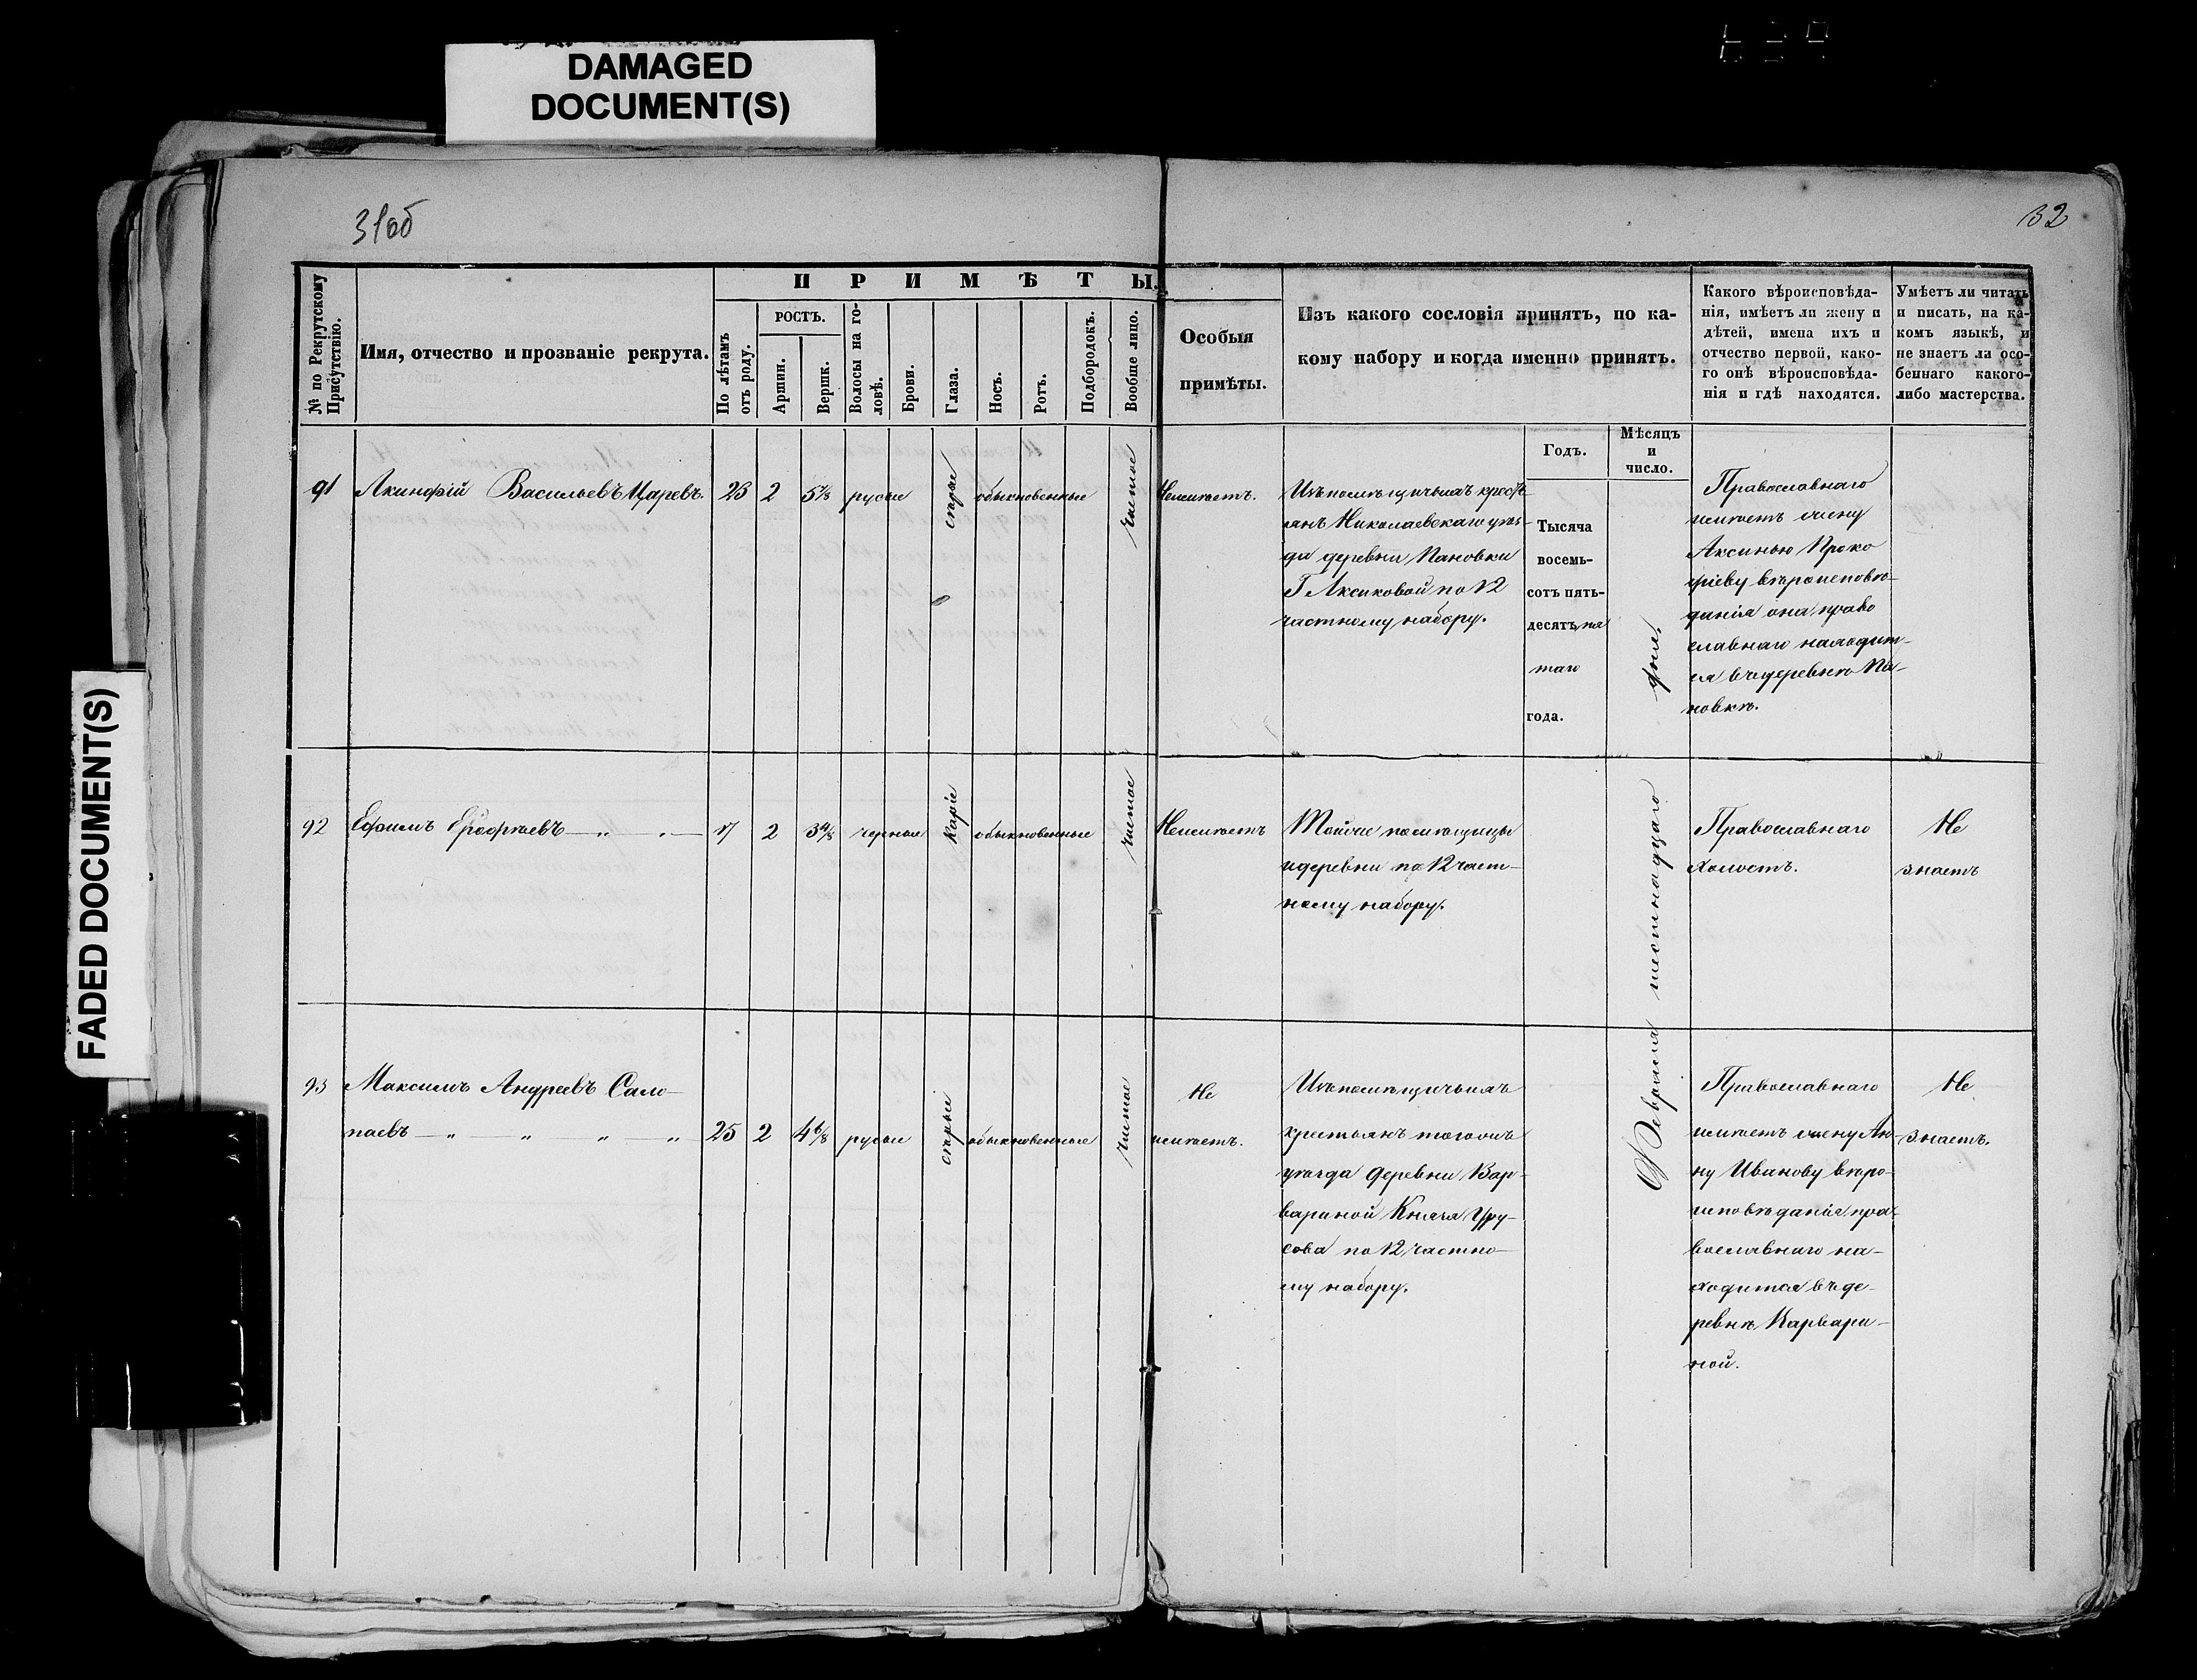 DAMAGED
DOCUMENT(S)
FADED DOCUMENT(S)
31об
32
№ по Рекрутскому Присутствію.
Имя, отчество и прозваніе рекрута.
ПРИМѢТЫ.
По лѣтамъ отъ роду.
РОСТЪ.
Аршин.
Вершк.
Волосы на головѣ.
Брови.
Глаза.
Носъ.
Ротъ.
Подбородокъ.
Вообще лицо.
Особыя
примѣты.
Изъ какого сословія принятъ, по ка-
кому набору и когда именно принятъ.
Какого вѣроисповѣда-
нія, имѣетъ ли жену и
дѣтей, имена ихъ и
отчество первой, како-
го онѣ вѣроисповѣда-
нія и гдѣ находятся.
Умѣетъ ли читать
и писать, на ка-
комъ языкѣ, и
не знаетъ ли осо-
беннаго какого-
либо мастерства.
Годъ.
Мѣсяцъ
и
число.
91
Акинфій Васильевъ Царевъ.
23
2
5 7/8
русые
сѣрые
обыкновенные
чистое
Неимѣетъ.
Изъ помѣщичьихъ кресть
янъ Николаевскаго уѣз-
да деревни Пановки
Г Аксаковой по 12
частному набору.
Тысяча
восемь-
сотъ пять-
десятъ пя
таго
года.
Февраля шестнадцаго дня.
Православнаго
имѣетъ жену
Аксинью Проко
фіеву вѣроисповѣ-
данія она право
славнаго находит-
ся въ деревнѣ Па-
новкѣ.
92
Ефимъ Ерофѣевъ — „ „ —
2
3 4/8
черные
каріе
обыкновенные
чистое
Неимѣетъ
Тойже помѣщицы
и деревни по 12 част-
ному набору.
Православнаго
холостъ.
Не
знаетъ
93
Максимъ Андреевъ Сало-
паевъ — „ — „ „ — „
25
2
4 6/8
русые
сѣрые
обыкновенные
чистое
Не
имѣетъ.
Изъ помѣщичьихъ
крестьянъ тогожъ
уѣзда деревни Вар-
вариной Князя Уру-
сова по 12 частно-
му набору.
Православнаго
имѣетъ жену Ан-
ну Иванову вѣро-
исповѣданія пра-
вославнаго на-
ходится въ де-
ревнѣ Варвари-
ной.
Не
знаетъ.